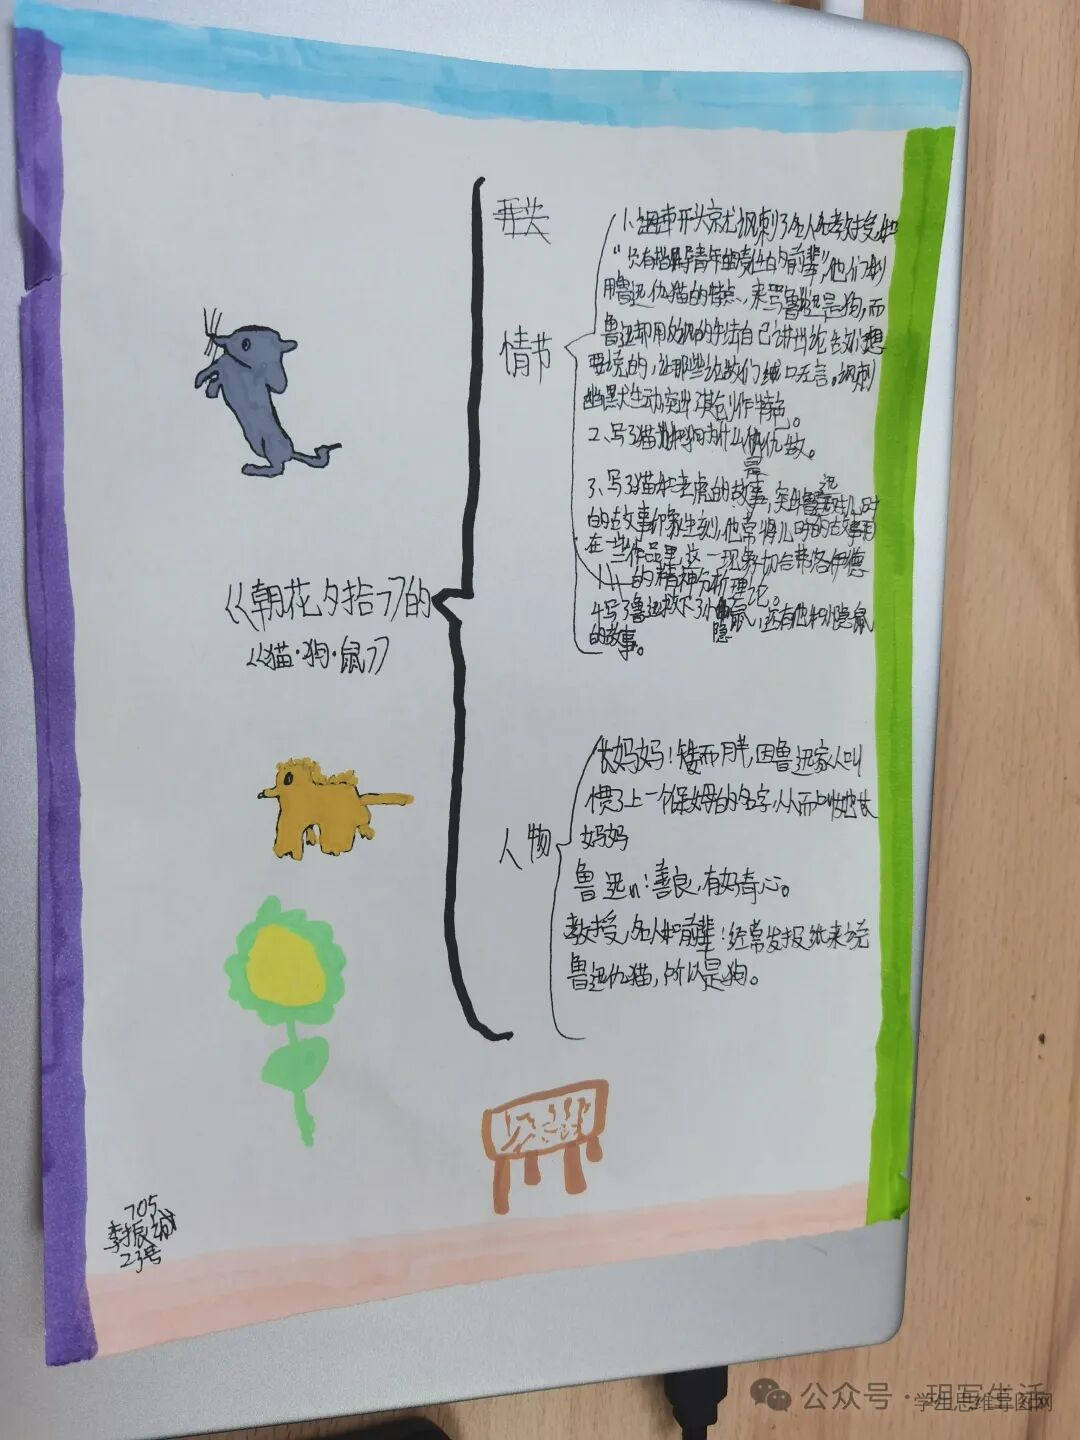 《朝花夕拾》的
《猫·狗·鼠》
开头
情节
1、
开头就讽刺了名人名教授和
"负有指导青年的责任的前辈",他们利
用鲁迅仇猫的特点、来骂鲁迅是狗,而
鲁迅却用的手法自己讲出论敌们想
要说的,让那些论敌们缄口无言。讽刺
幽默生动突出其创作特色。
2、写了猫和狗为什么是仇敌。
3、写了猫和老虎的故事,突出鲁迅对儿时
的故事印象生刻,他常将儿时的故事用
在一些作品里,这一现象切合弗洛伊德
的精神分析理论。
4写了鲁迅救下了小隐鼠,还有他和小隐鼠
的故事。
人物
长妈妈:矮而胖,因鲁迅家人叫
惯了上一个保姆的名字,从而叫她长
妈妈
鲁迅:善良,有好奇心。
教授,名人和前辈:经常发报纸来说
鲁迅仇猫,所以是狗。
705
李振城
23号
公众号·玥写生活
学生思维导图网